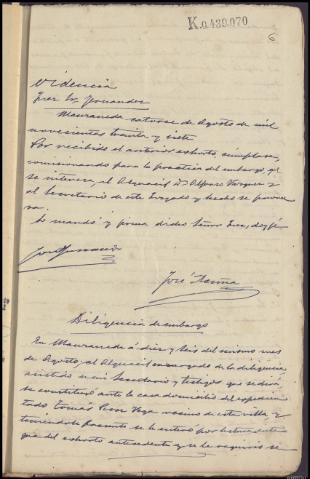 K.0,439,070
6
Providencia
Juez Sr. Fernandez
catorce de Agosto de mil
novecientos treinta y siete
Por recibido el anterior exhorto, cumplase,
comisionando para la practica del embargo qe
se interesa, al Alguacil Dn Alfonso Vazquez y
al Secretario de este Juzgado y hecho se
Lo mandó y firma dicho Señor Juez, doy fé
José
Diligencia de embargo
En a diez y seis del mismo mes
de Agosto, el Alguacil encargado de la diligencia
asistido de mi Secretario y testigos que se dirá
se constituyó ante la casa domicilio del
Tomás Vega vecino de esta villa, y
teniendole presente se le enteró por lectura
del exhorto antecedente y se le requirió